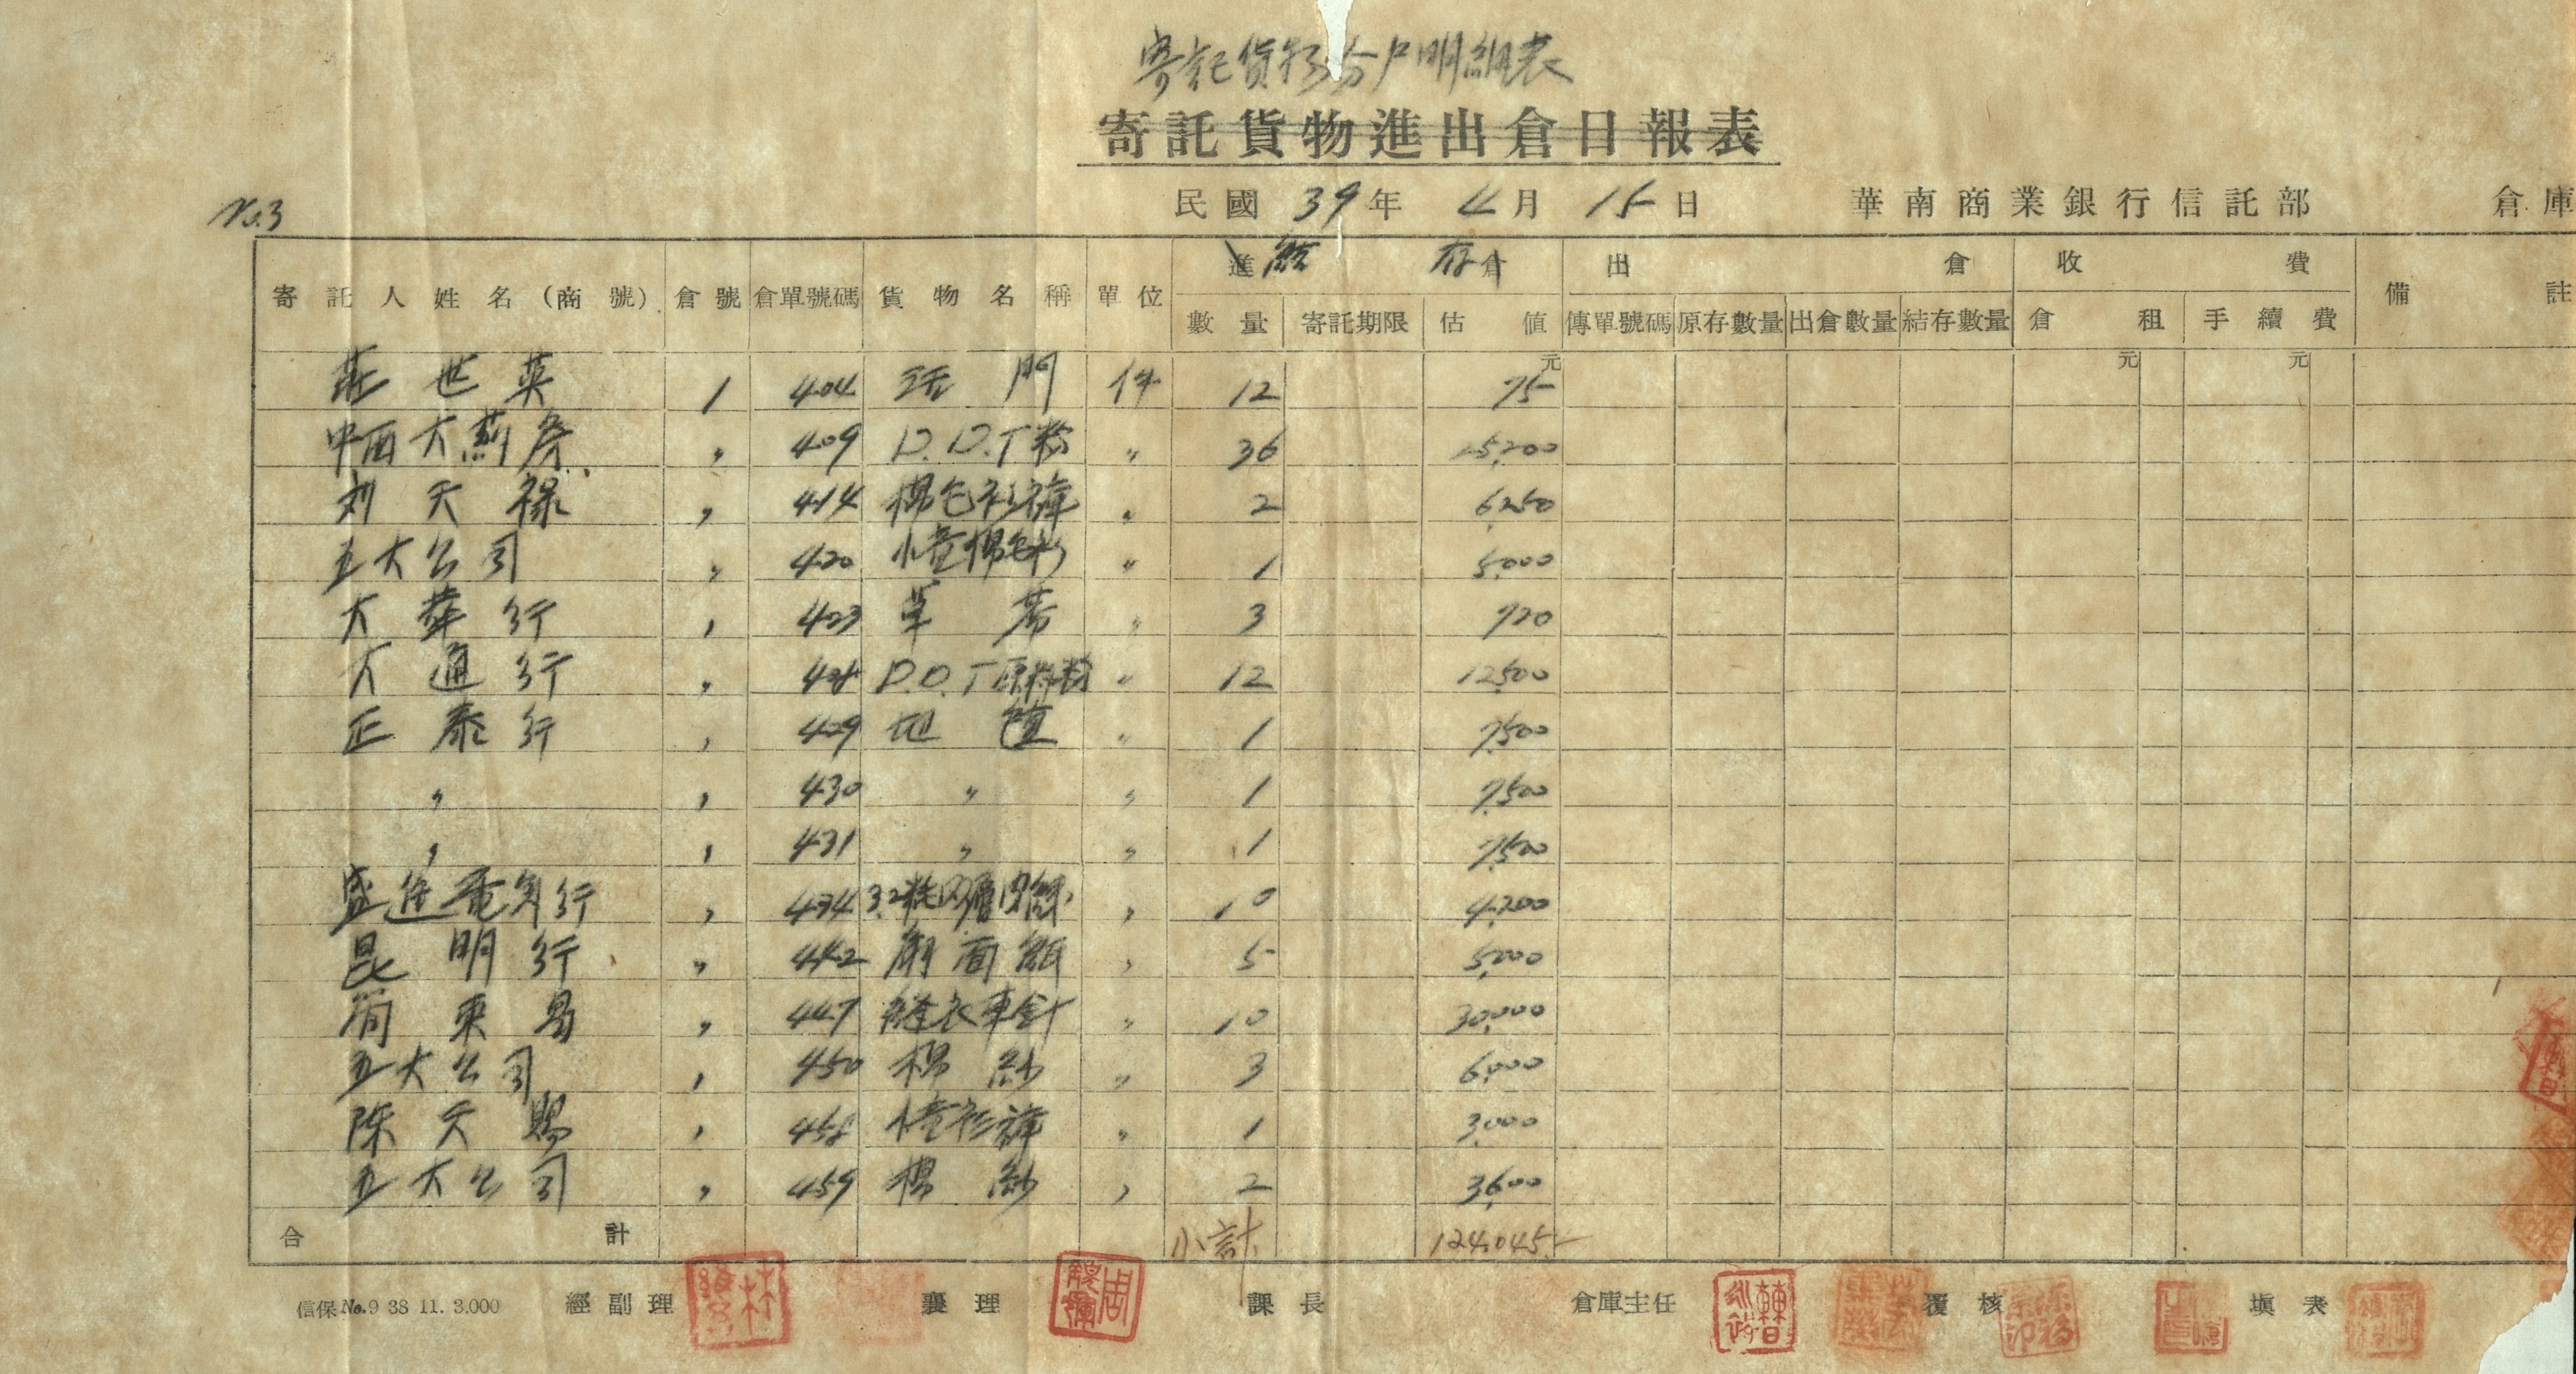 寄託貨物分戶明細表
寄託貨物進出倉日報表
No.3
民國 39 年 4 月 15 日 華南商業銀行信託部 倉庫
寄託人姓名(商號) 倉號 倉單號碼 貨物名稱 單位 進 結 存 倉 出 倉 收 費 備 註
數量 寄託期限 估值 傳單號碼 原存數量 出倉數量 結存數量 倉租 手續費
元 元 元
莊世英 1 404 活門 件 12 75
中西大葯房 〃 409 D.D.T粉 〃 36 25,200
刘天祿 〃 414 棉毛衫褲 〃 2 6,250
五大公司 〃 420 棉毛衫 〃 1 5,000
大華行 〃 423 草蓆 〃 3 720
大通行 〃 428 D.D.T原料粉 〃 12 12,500
正泰行 〃 429 地氈 〃 1 7,500
〃 〃 430 〃 〃 1 7,500
〃 〃 431 〃 〃 1 7,500
盛進電気行 〃 434 3.2粍 〃 10 4,200
昆明行 〃 442 面紙 〃 5 5,000
簡東昌 〃 447 縫衣車針 〃 10 30,000
五大公司 〃 450 棉紗 〃 3 6,000
陳天賜 〃 458 衫褲 〃 1 3,000
五大公司 〃 459 棉紗 〃 2 3,600
合計 小計 124,045
信保No.9 38 11. 3.000 經副理 襄理 課長 倉庫主任 覆核 填表